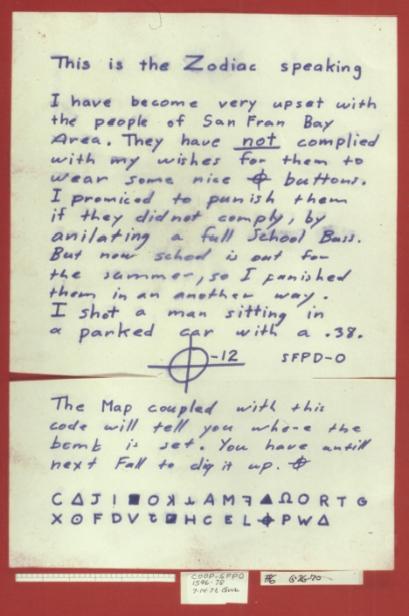 This is the Zodiac speaking
I have become very upset with
the people of San Fran Bay
Area. They have not complied
with my wishes for them to
wear some nice ⌖ buttons.
I promiced to punish them
if they did not comply, by
anilating a full School Buss.
But now school is out for
the summer, so I punished
them in an another way.
I shot a man sitting in
a parked car with a .38.
⌖-12 SFPD-0
The Map coupled with this
code will tell you where the
bomb is set. You have untill
next Fall to dig it up. ⌖
C Δ J I ■ O ꓘ ⅄ A M ꟻ ▲ Ω O R T G
X ⊙ F D V H C E L ⌖ P W Δ
COOP-SFPD
1596-70
#6 6-26-70